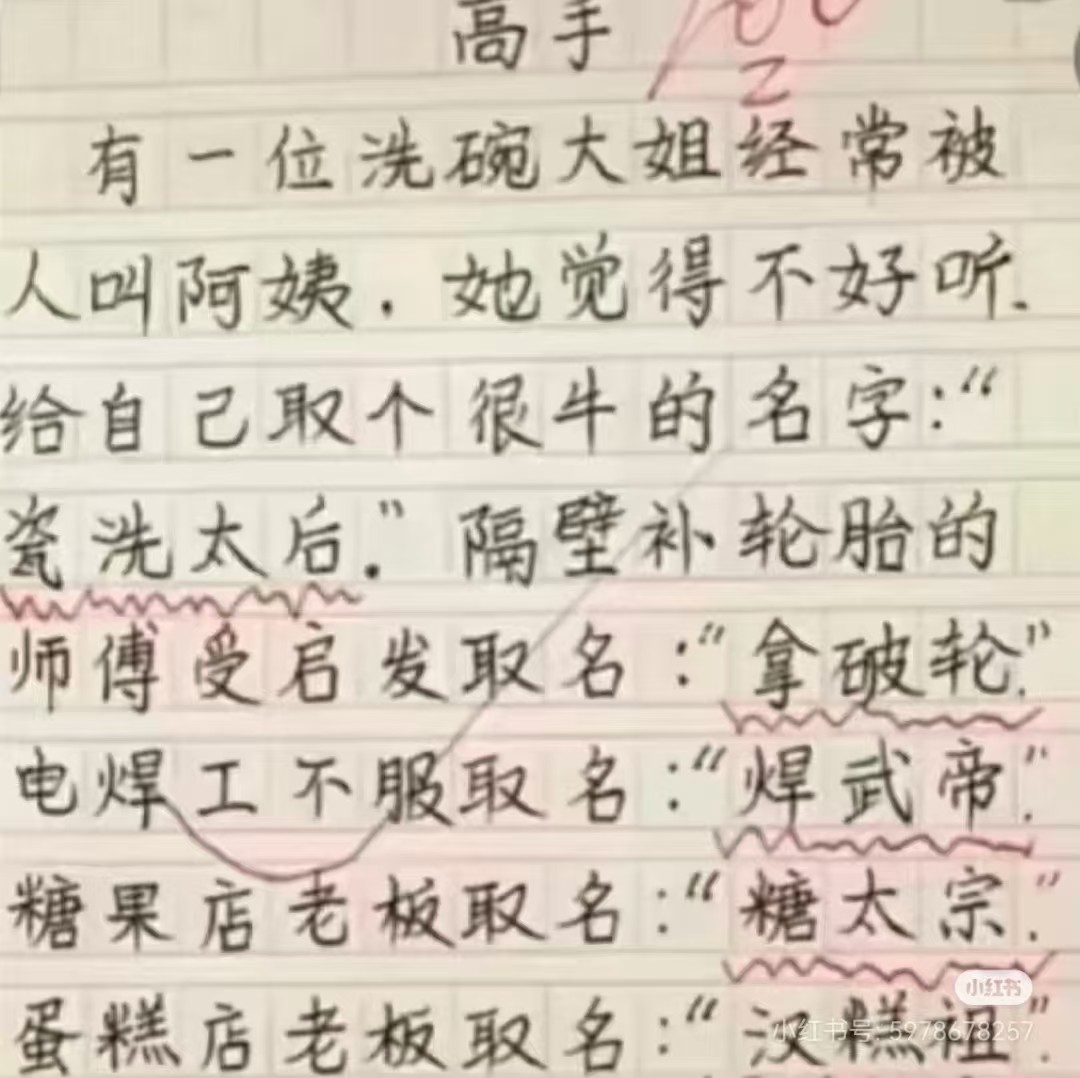 高手
有一位洗碗大姐经常被
人叫阿姨.她觉得不好听.
给自己取个很牛的名字:“
瓷洗太后.”隔壁补轮胎的
师傅受启发取名:“拿破轮.”
电焊工不服取名:“焊武帝.”
糖果店老板取名:“糖太宗.”
蛋糕店老板取名:“汉糕祖.”
小红书
小红书号:5978678257